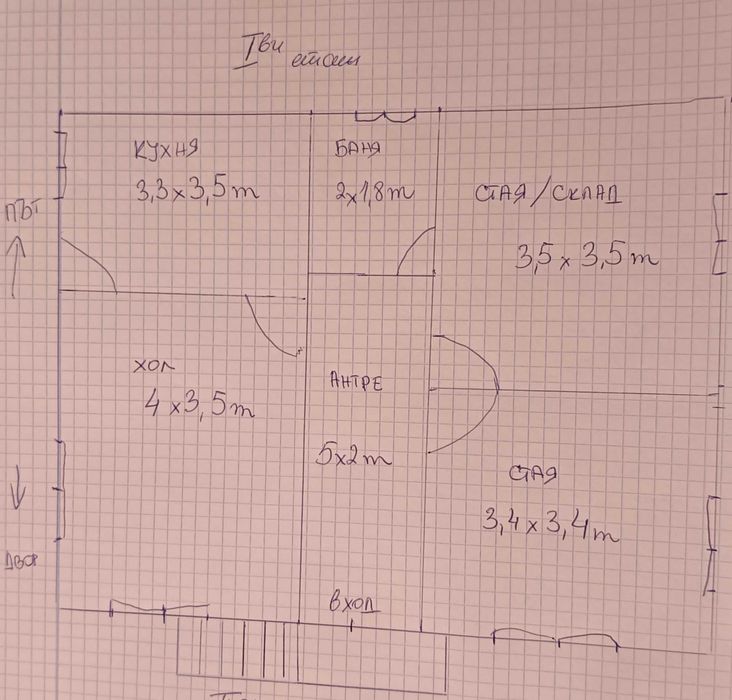 Iви етаж
КУХНЯ
3,3 x 3,5 m
БАНЯ
2x1,8 m
СТАЯ / СКЛАД
3,5 x 3,5 m
ПЪТ
ХОЛ
4 x 3,5 m
АНТРЕ
5x2 m
СТАЯ
3,4 x 3,4 m
ДВОР
ВХОД